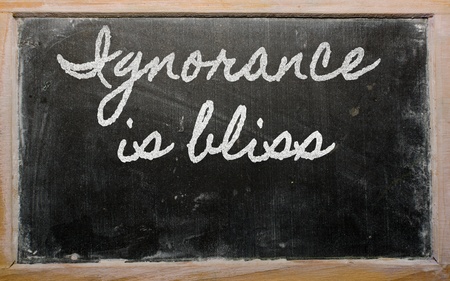 Ignorance
is bliss